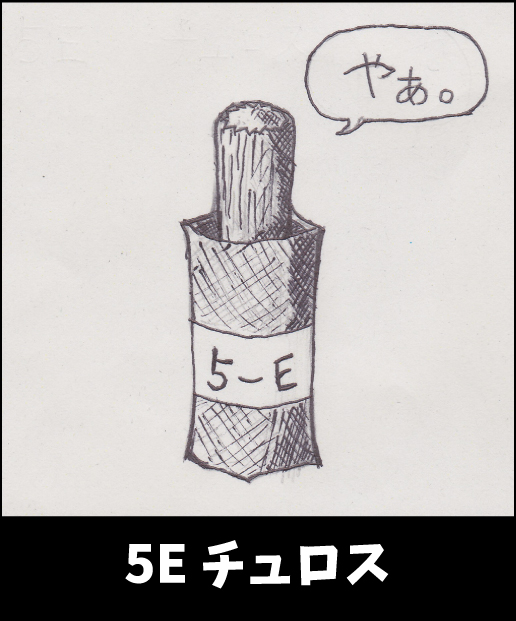 やぁ。
5-E
5E チュロス